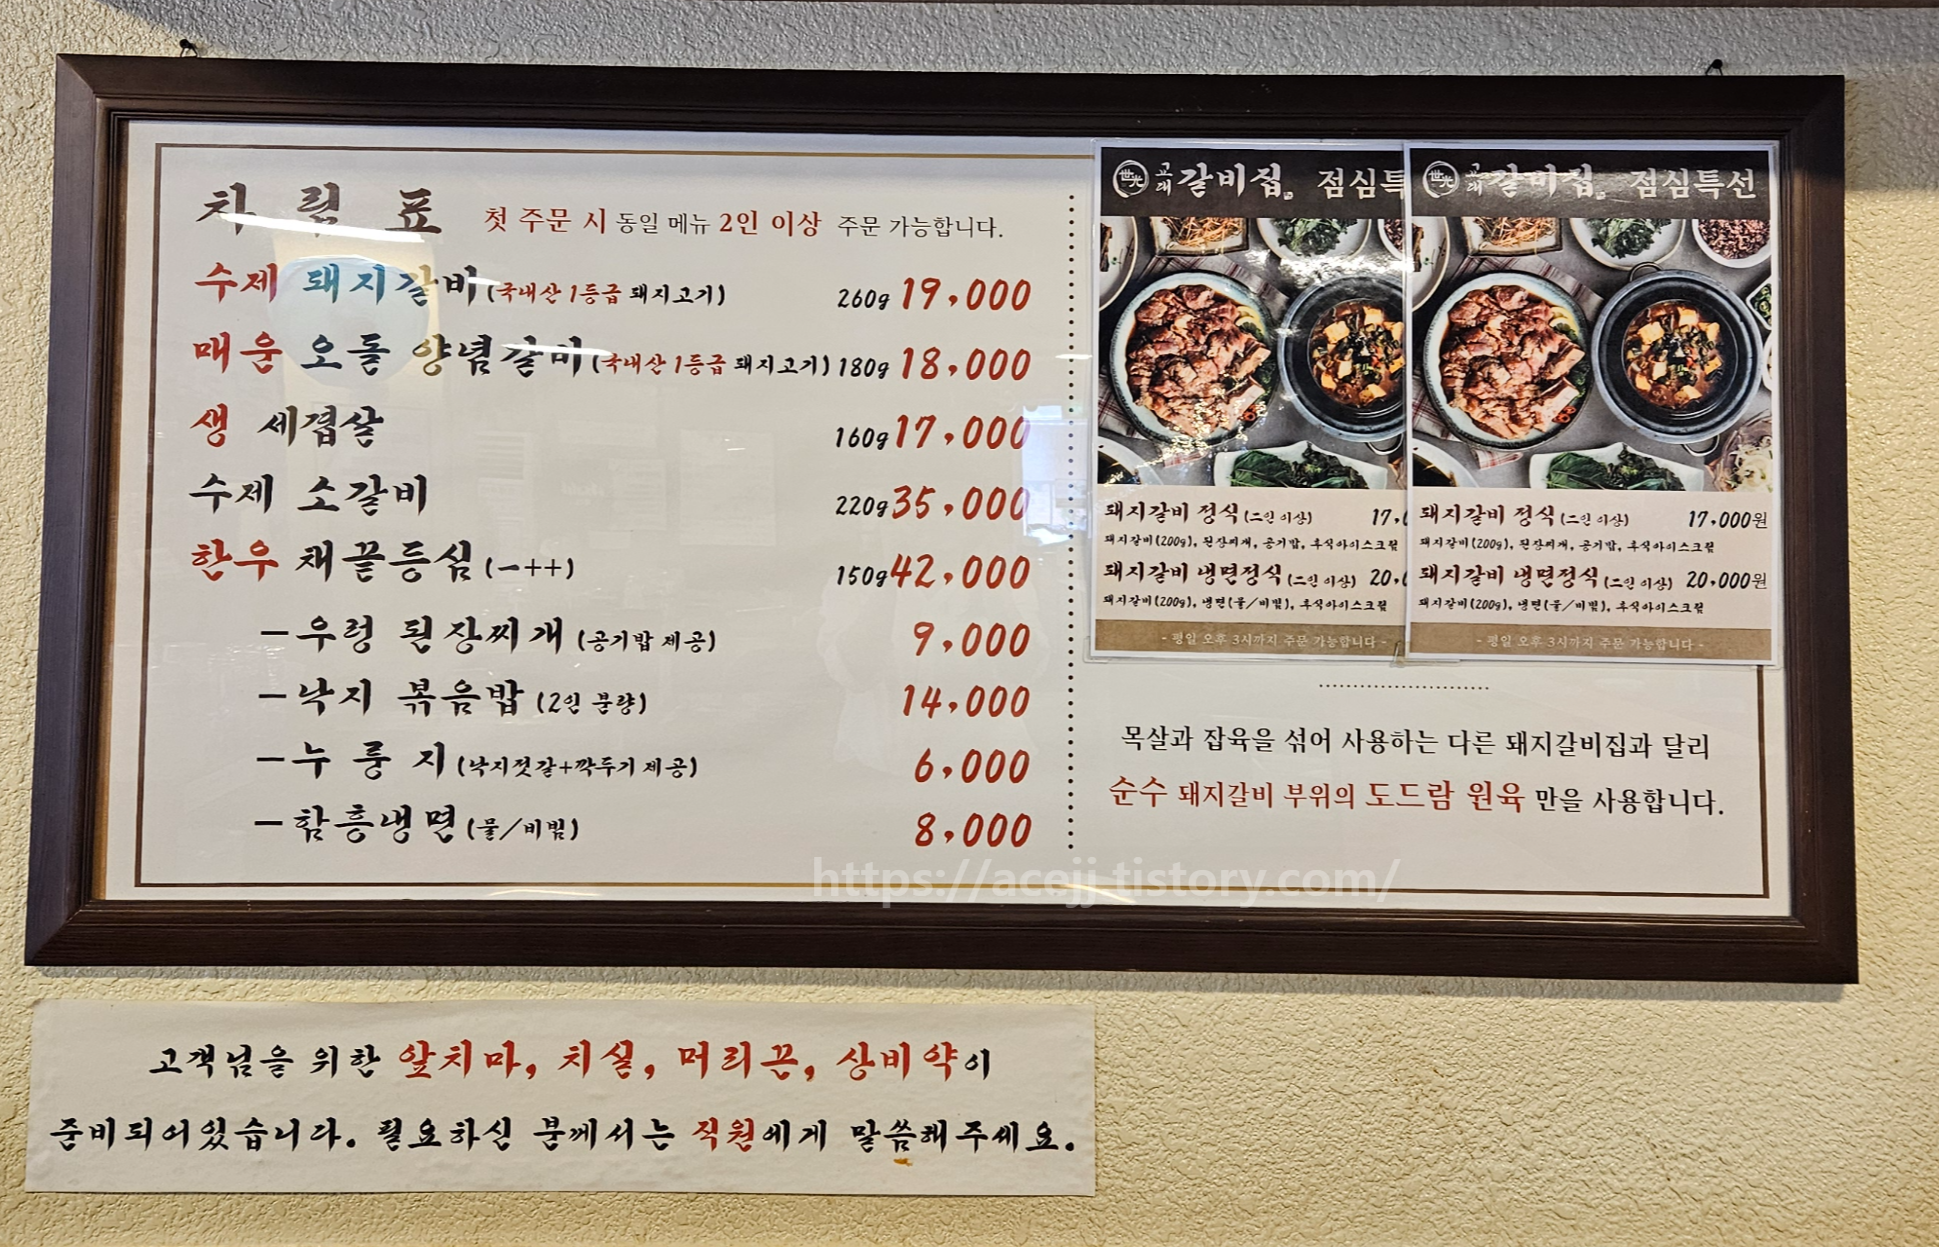 차 림 표 첫 주문 시 동일 메뉴 2인 이상 주문 가능합니다.
수제 돼지갈비(국내산 1등급 돼지고기) 260g 19,000
매운 오돌 양념갈비(국내산 1등급 돼지고기) 180g 18,000
생 세겹살 160g 17,000
수제 소갈비 220g 35,000
한우 채끝등심(一++) 150g 42,000
-우렁 된장찌개(공기밥 제공) 9,000
-낙지 볶음밥(2인 분량) 14,000
-누 룽 지(낙지젓갈+깍두기 제공) 6,000
-함흥냉면(물/비빔) 8,000
世光 고래 갈비집 점심특
돼지갈비 정식(二인 이상) 17,0
돼지갈비(200g), 된장찌개, 공기밥, 후식아이스크림
돼지갈비 냉면정식(二인 이상) 20,0
돼지갈비(200g), 냉면(물/비빔), 후식아이스크림
- 평일 오후 3시까지 주문 가능합니다 -
世光 고래 갈비집 점심특선
돼지갈비 정식(二인 이상) 17,000원
돼지갈비(200g), 된장찌개, 공기밥, 후식아이스크림
돼지갈비 냉면정식(二인 이상) 20,000원
돼지갈비(200g), 냉면(물/비빔), 후식아이스크림
- 평일 오후 3시까지 주문 가능합니다 -
목살과 잡육을 섞어 사용하는 다른 돼지갈비집과 달리
순수 돼지갈비 부위의 도드람 원육 만을 사용합니다.
https://acejj.tistory.com/
고객님을 위한 앞치마, 치실, 머리끈, 상비약이
준비되어있습니다. 필요하신 분께서는 직원에게 말씀해주세요.